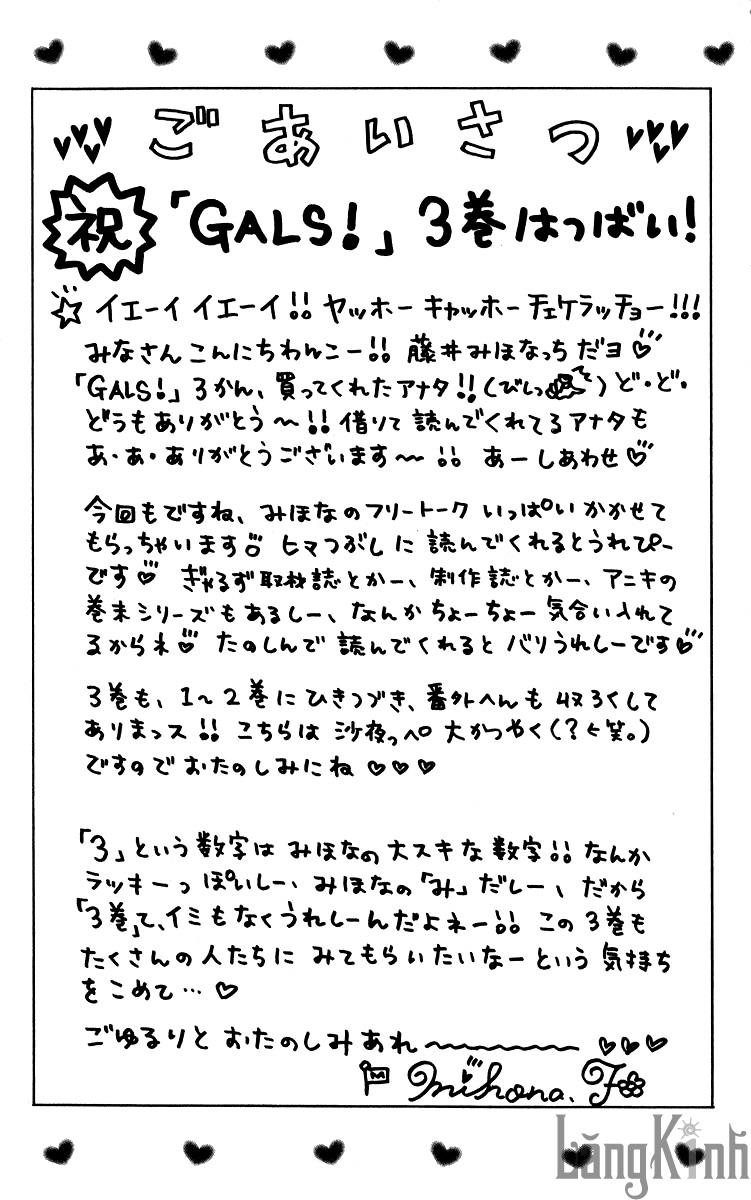 ごあいさつ
祝「GALS!」3巻はっばい!
☆イエーイ イエーイ!! ヤッホー キャッホー チェケラッチョー!!!
みなさんこんにちわんこー!! 藤井みほなっちだヨ♡
「GALS!」3かん、買ってくれたアナタ!!(びしっ)ど・ど・
どうもありがとう〜!! 借りて読んでくれてるアナタも
あ・あ・ありがとうございます〜!! あーしあわせ♡
今回もですね、みほなのフリートーク いっぱいかかせて
もらっちゃいます!! ヒマつぶしに読んでくれるとうれぴー
です♡ ぎゃるず取材誌とかー、制作誌とかー、アニキの
巻末シリーズもあるしー、なんかちょーちょー気合い入れて
るからネ♡ たのしんで読んでくれるとバリうれしーです♡
3巻も、1〜2巻にひきつづき、番外へんも収ろくして
ありまっス!! こちらは沙夜っぺ大かつやく(?←笑。)
ですのでおたのしみにね♡♡♡
「3」という数字はみほなの大スキな数字!! なんか
ラッキーっぽいしー、みほなの「み」だしー、だから
「3巻」て、イミもなくうれしーんだよネー!! この3巻も
たくさんの人たちにみてもらいたいなーという気持ち
をこめて…♡
ごゆるりとおたのしみあれ〜 ♡♡♡
M Mihona.F
LăngKính